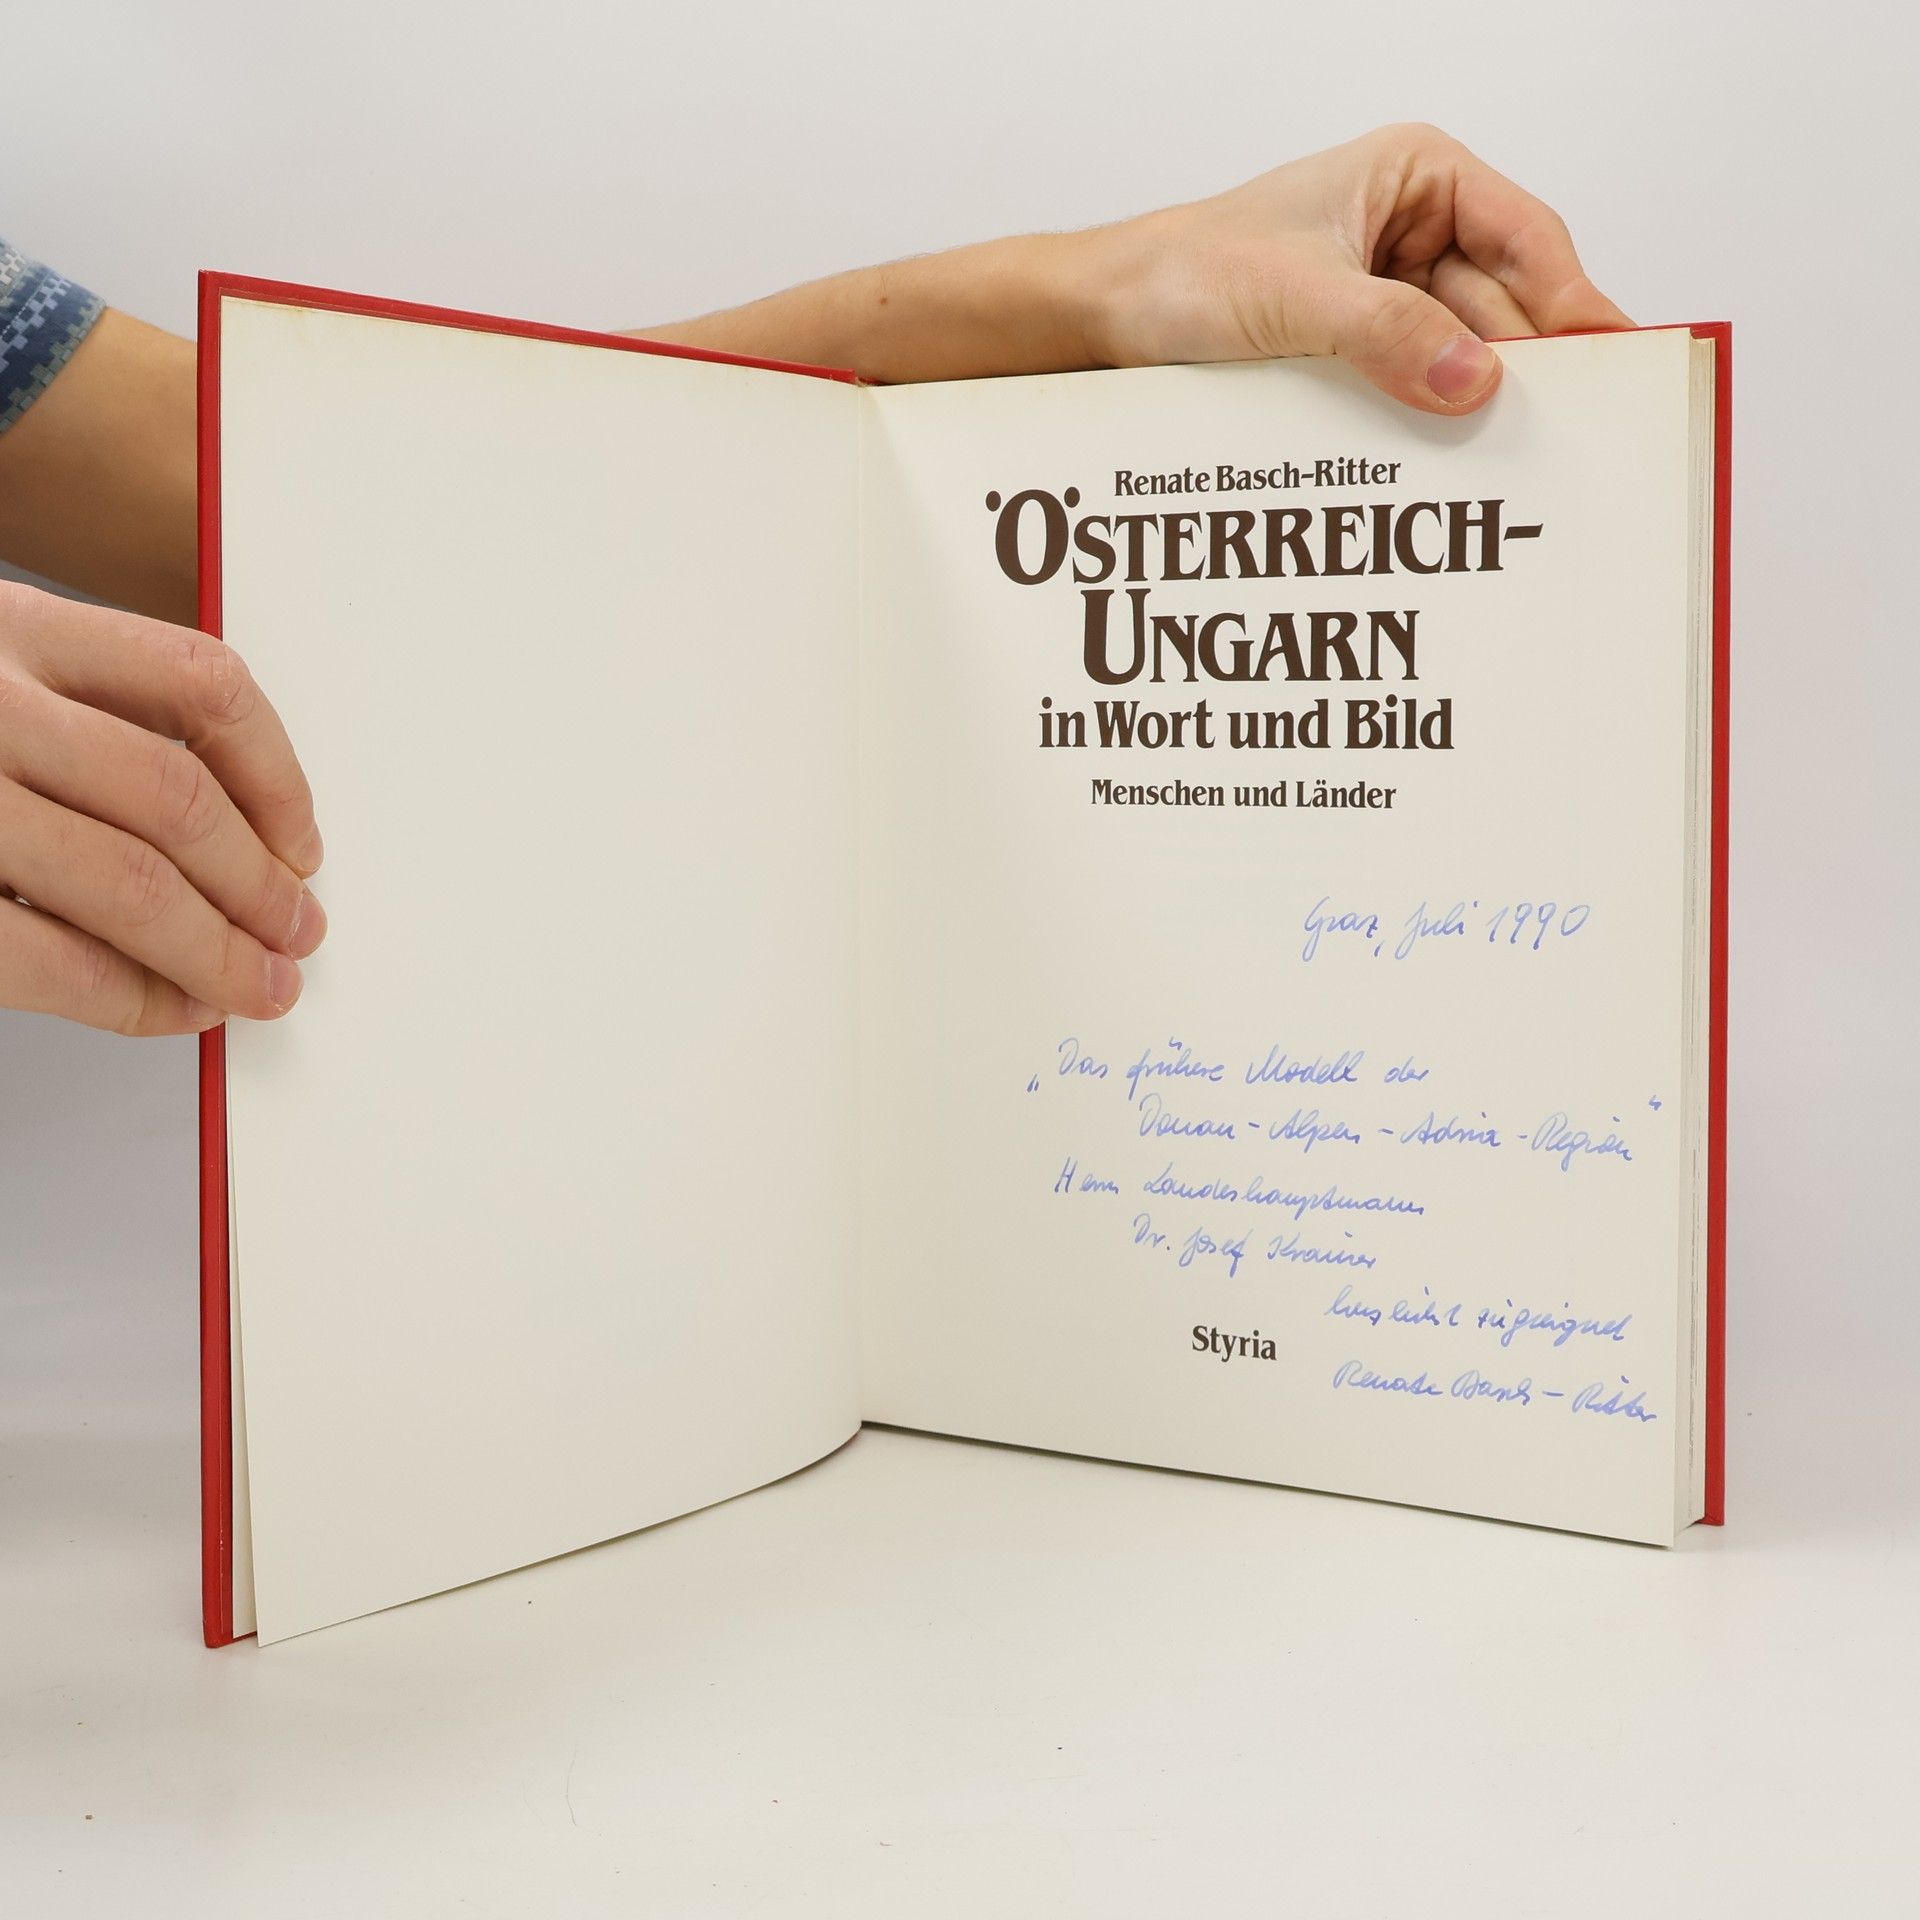 Renate Basch-Ritter
ÖSTERREICH-
UNGARN
in Wort und Bild
Menschen und Länder
Graz, Juli 1990
„Das frühere Modell der
Donau - Alpen - Adria - Region“
Herrn Landeshauptmann
Dr. Josef Krainer
herzlichst zugeeignet
Styria
Renate Basch - Ritter